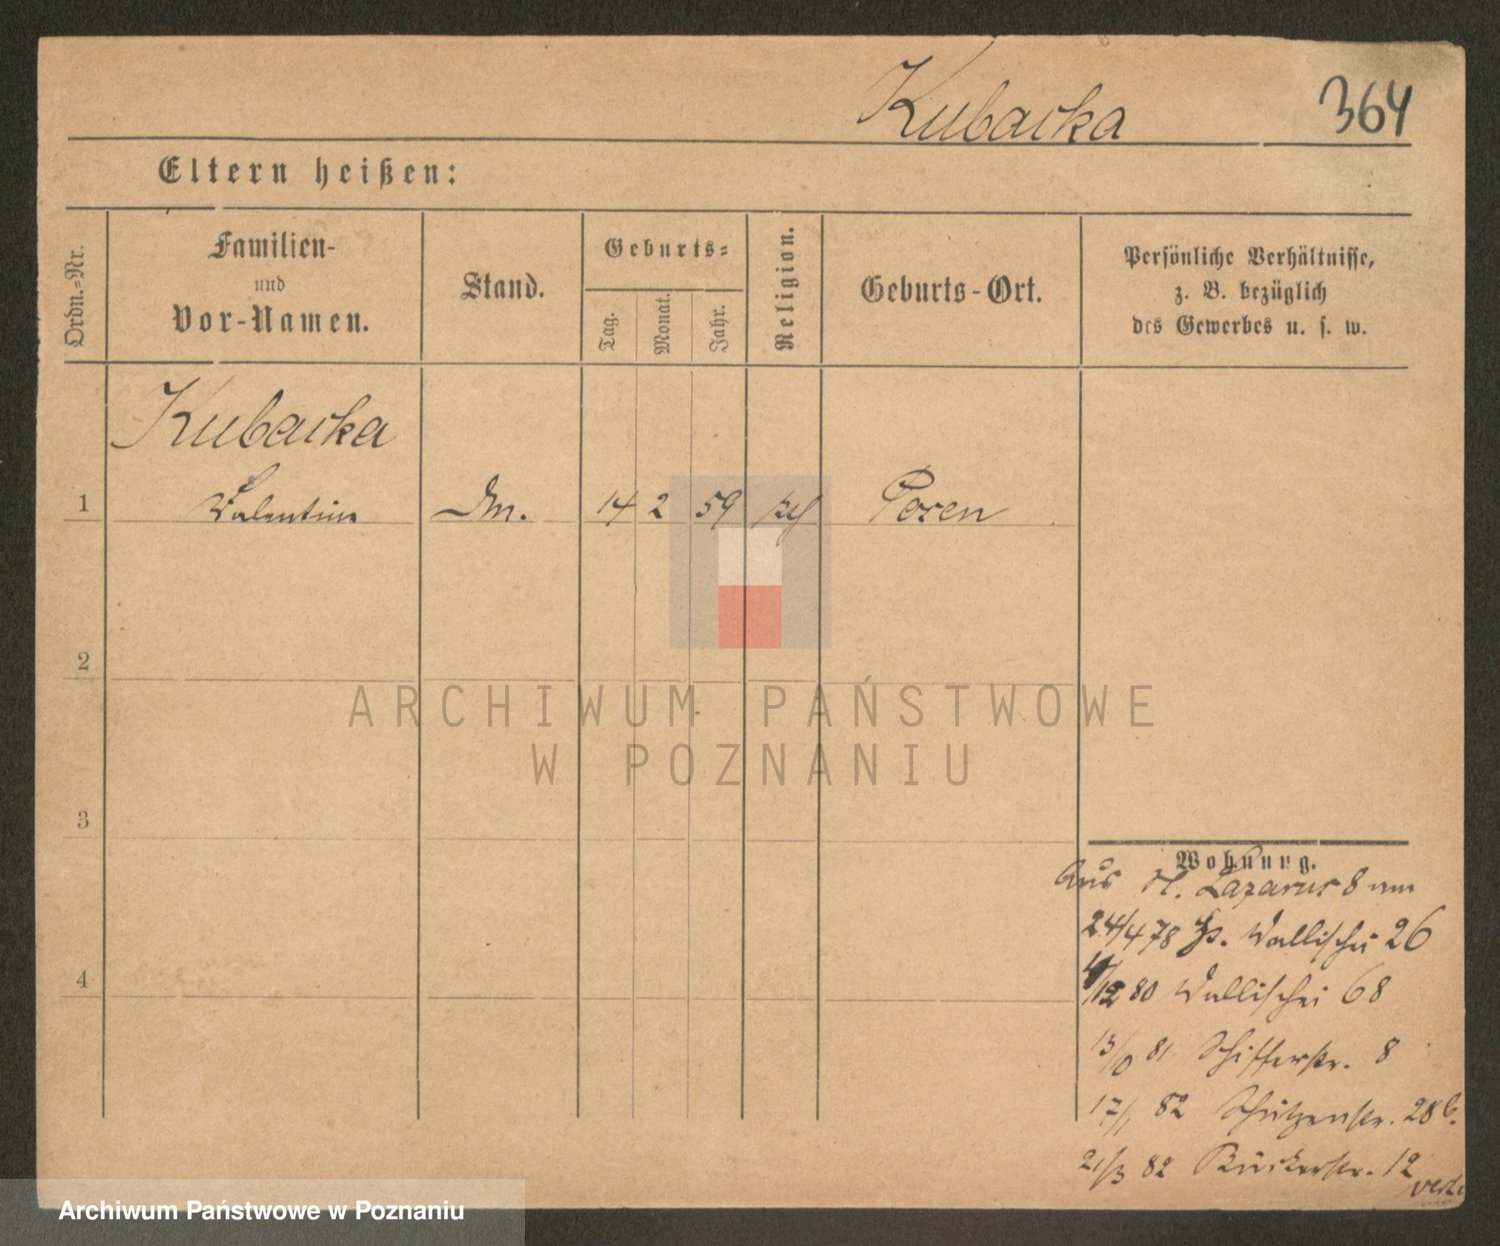 Kubacka 364
Eltern heißen:
Ordn.-Nr.
Familien-
und
Vor-Namen.
Stand.
Geburts-
Tag.
Monat.
Jahr.
Religion.
Geburts-Ort.
Persönliche Verhältnisse,
z. B. bezüglich
des Gewerbes u. s. w.
Kubacka
1 Valentine 14 2 59 Posen
2
3
4
Wohnung.
Aus St. Lazarus 8 am
24/4 78 Wallischei 26
80 Wallischei 68
81 Schifferstr. 8
17/1 82 Schützenstr. 28b.
21/3 82 12
ARCHIWUM PAŃSTWOWE
W POZNANIU
Archiwum Państwowe w Poznaniu